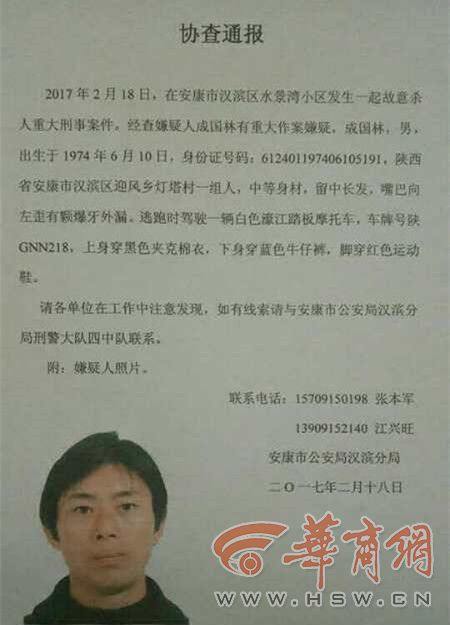 协查通报
2017 年 2 月 18 日，在安康市汉滨区水景湾小区发生一起故意杀
人重大刑事案件。经查嫌疑人成国林有重大作案嫌疑，成国林，男，
出生于 1974 年 6 月 10 日，身份证号码：612401197406105191，陕西
省安康市汉滨区迎风乡灯塔村一组人，中等身材，留中长发，嘴巴向
左歪有颗爆牙外漏。逃跑时驾驶一辆白色濠江踏板摩托车，车牌号陕
GNN218，上身穿黑色夹克棉衣，下身穿蓝色牛仔裤，脚穿红色运动
鞋。
请各单位在工作中注意发现，如有线索请与安康市公安局汉滨分
局刑警大队四中队联系。
附：嫌疑人照片。
联系电话：15709150198 张本军
13909152140 江兴旺
安康市公安局汉滨分局
二〇一七年二月十八日
華商網
WWW.HSW.CN